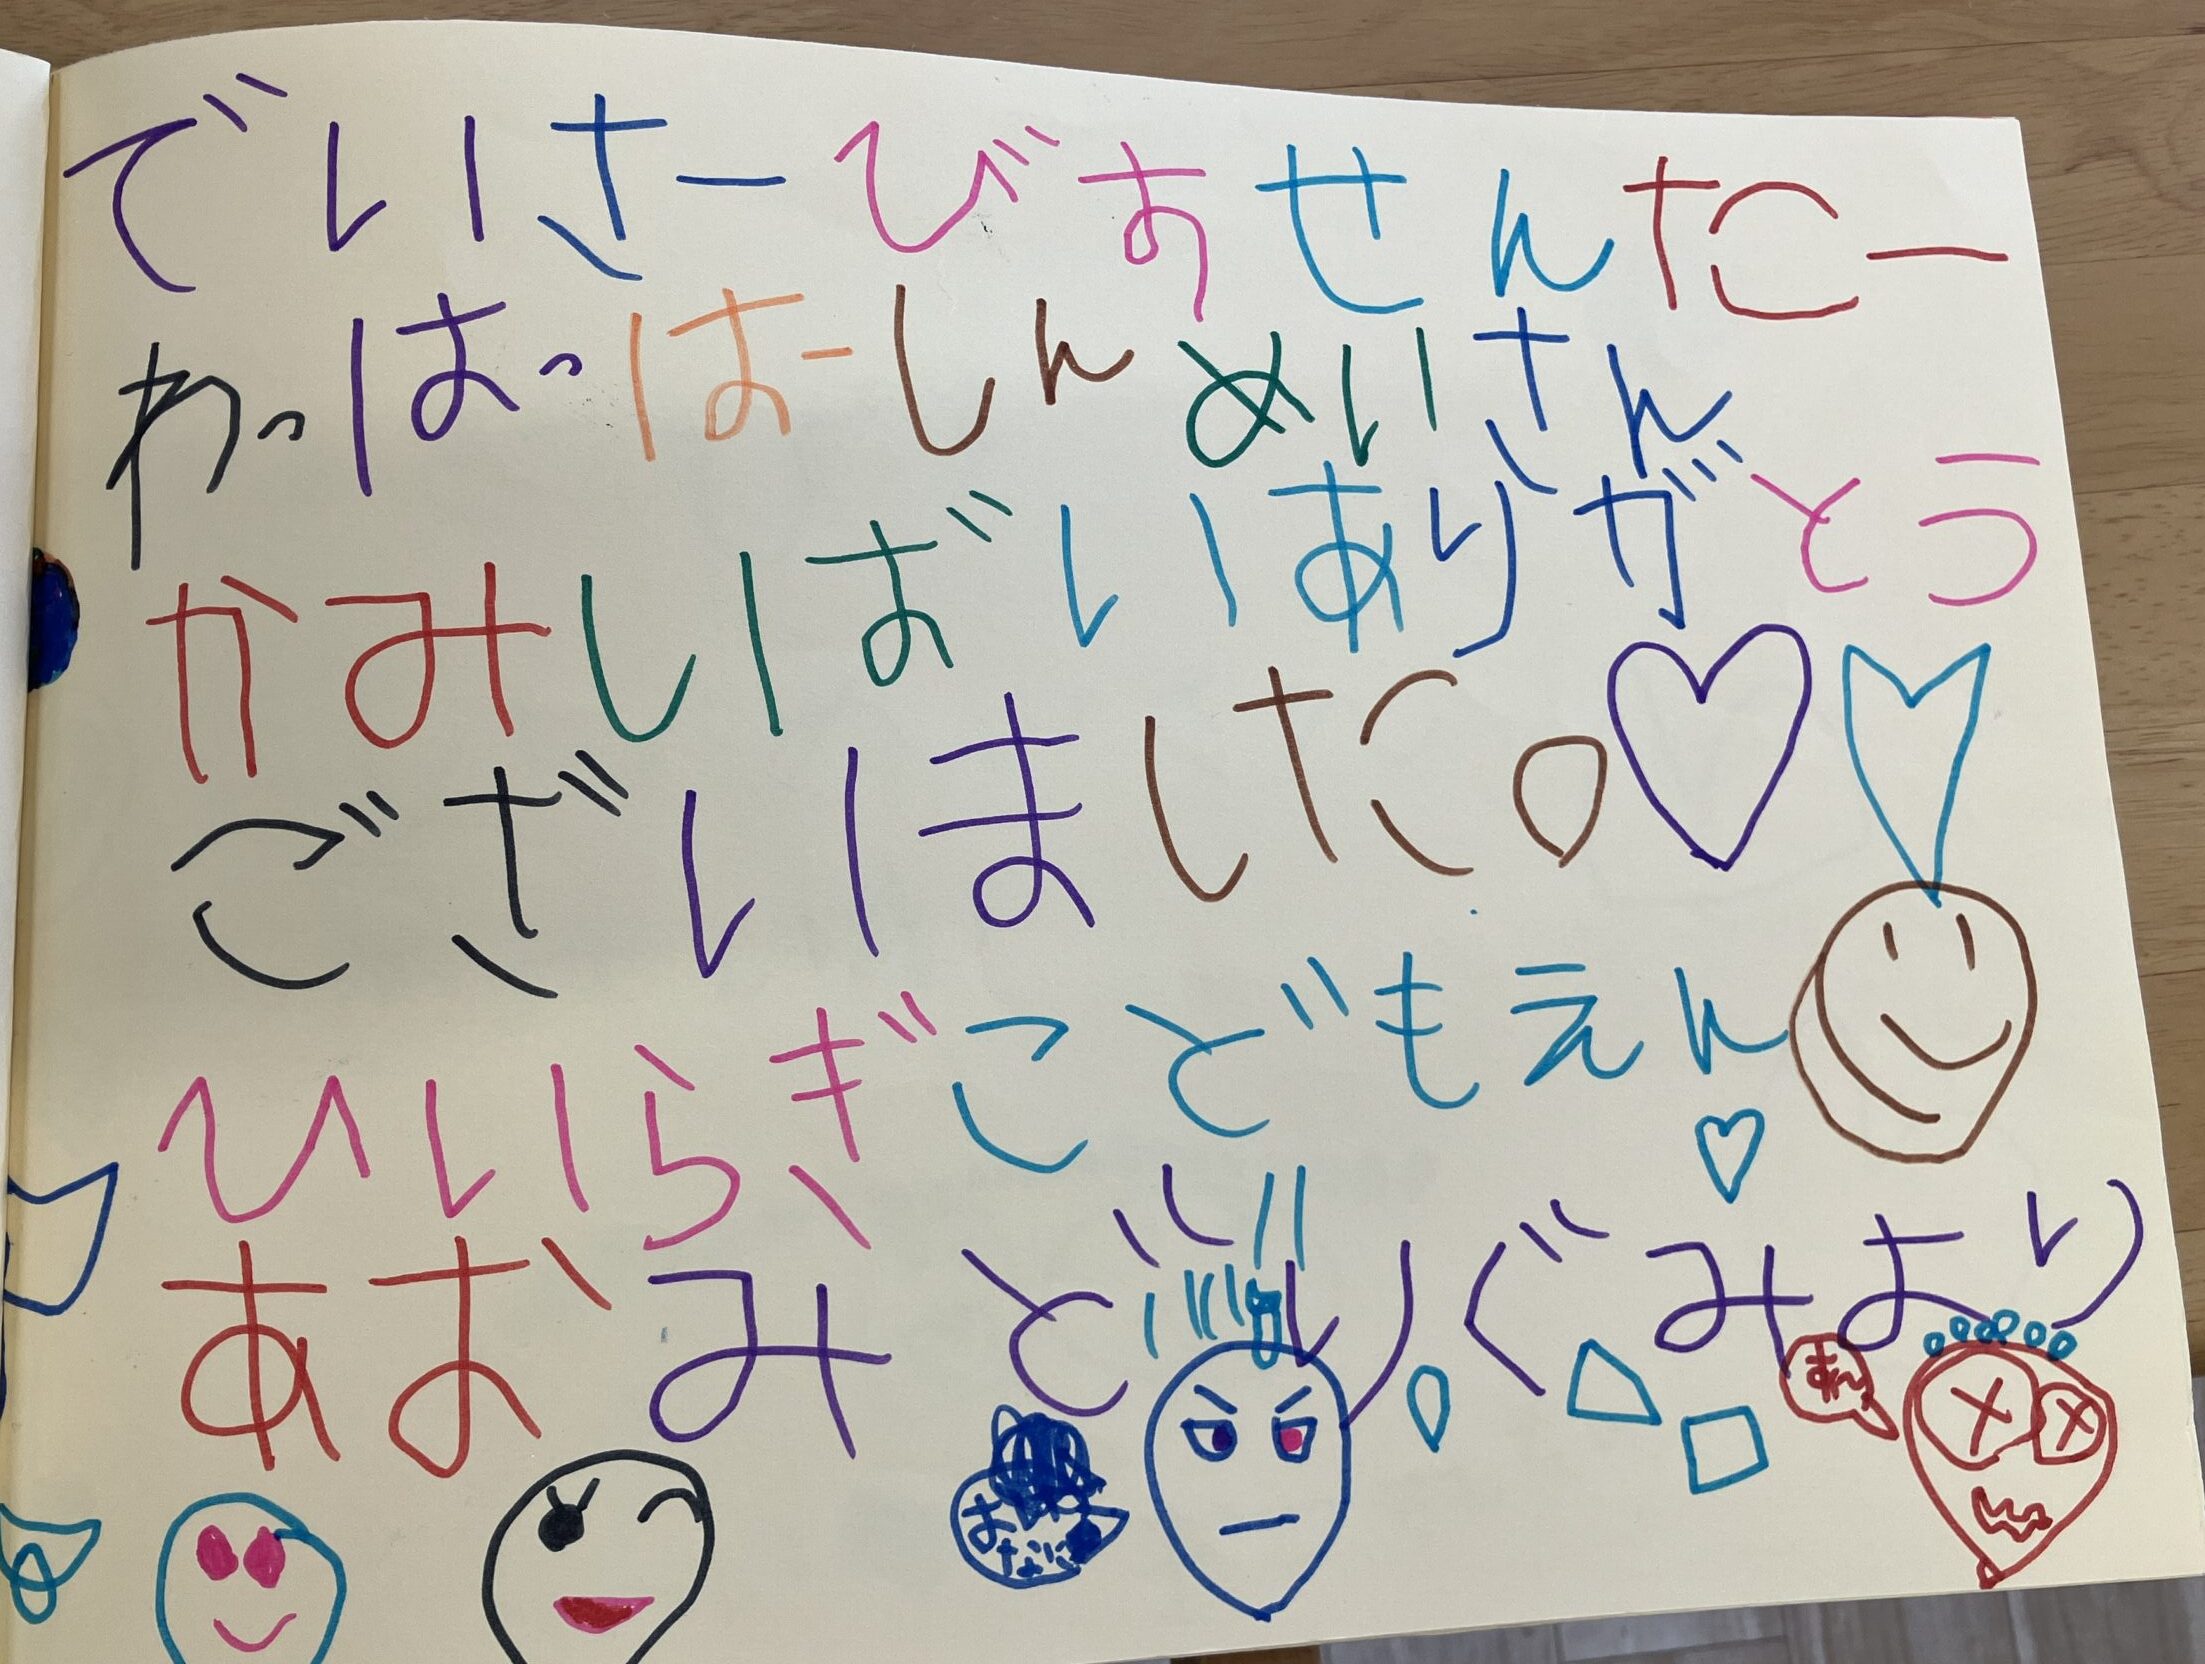 でいさーびすせんたー
わっはっはーしんめいさん
かみしばいありがとう
ございました。
ひいらぎこどもえん
あおみどりぐみより